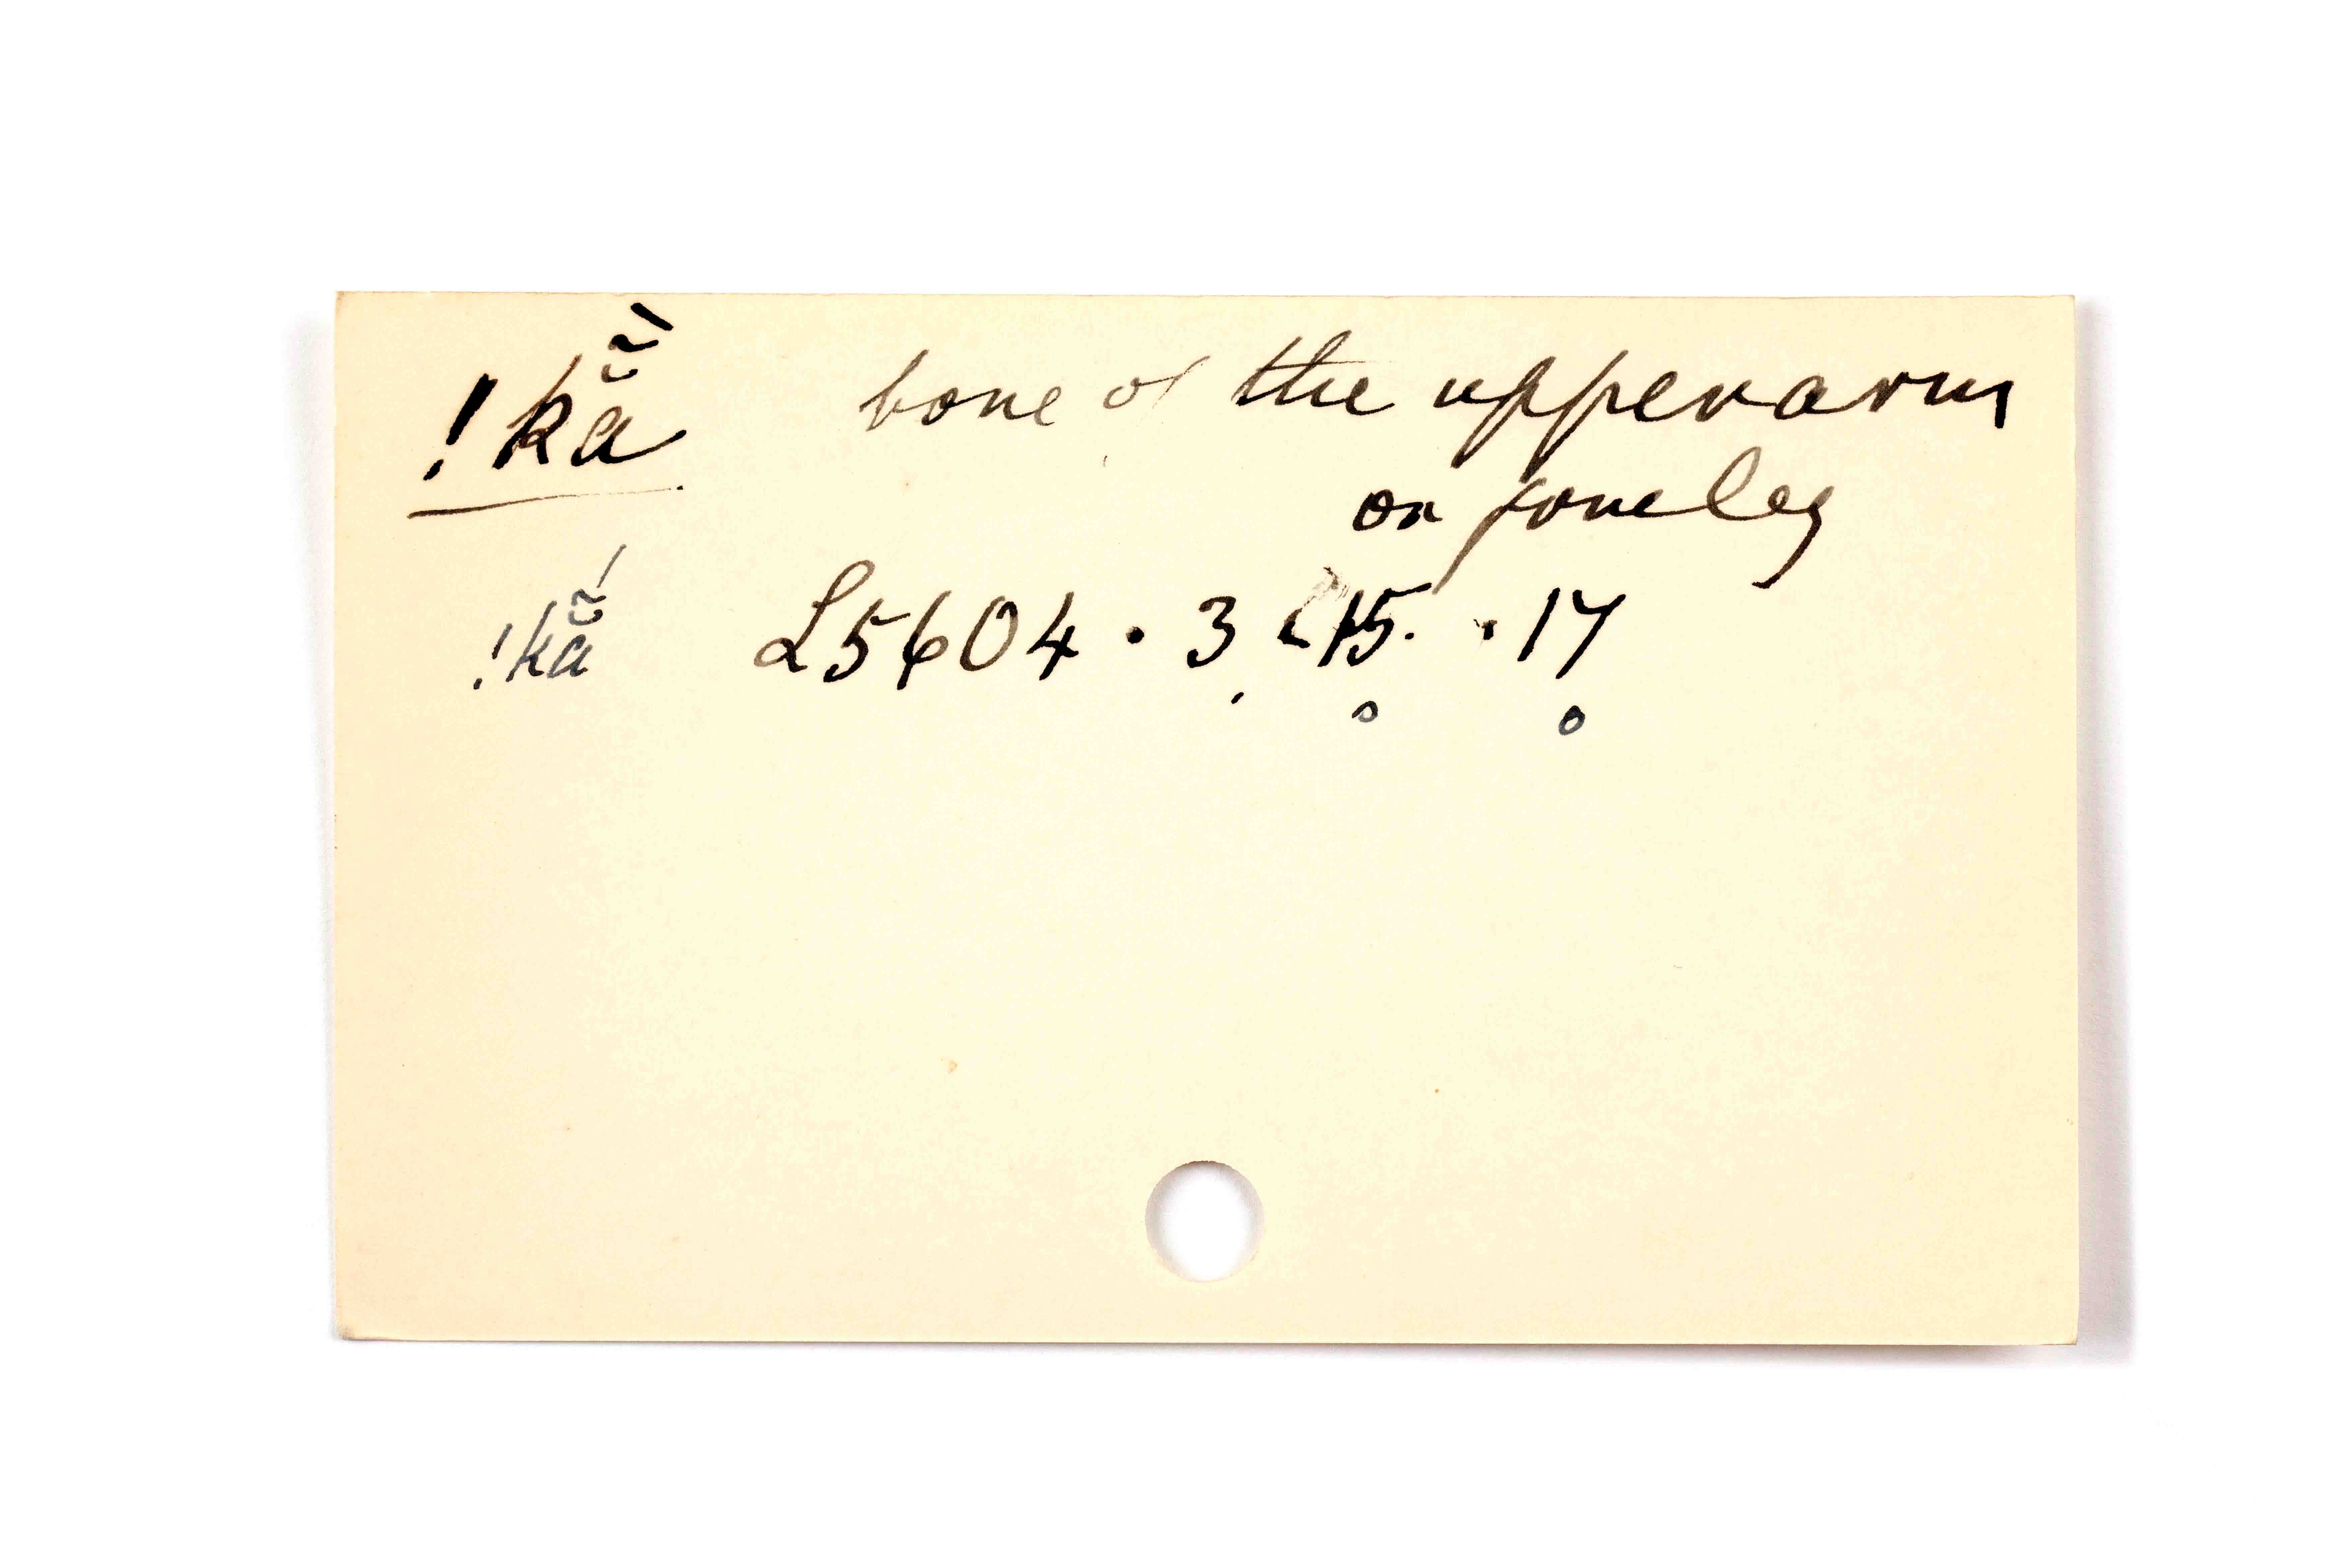 !kẵ́ bone of the upper arm
or foreleg
!kẵ́ L5604 · 3, 15. · 17